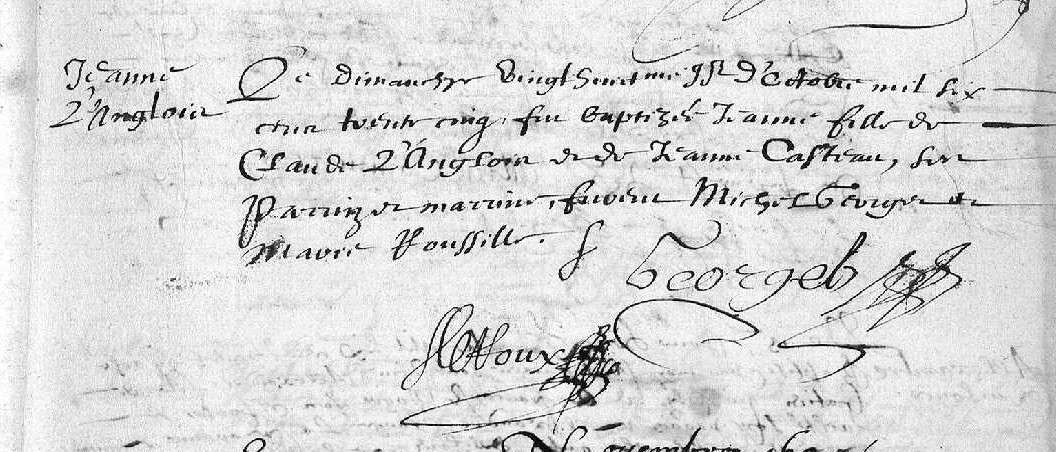 Jeanne
L'Anglois
Le Dimanche vingt huict me jour d'Octobre mil six
cens trente cinq fut baptizée Jeanne fille de
Claude L'Anglois et de Jeanne Casteau, ses
Parrin et marrine furent Michel George et
Marie Roussille.
Georges
Novembre